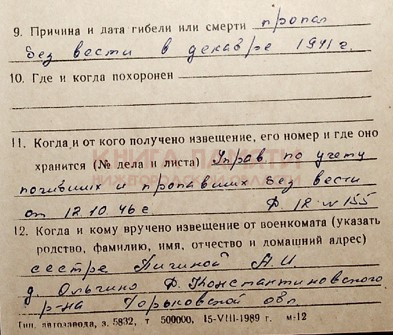 9. Причина и дата гибели или смерти пропал
без вести в декабре 1941 г.
10. Где и когда похоронен
11. Когда и от кого получено извещение, его номер и где оно
хранится (№ дела и листа) Управ по учету
погибших и пропавших без вести
от 12.10.46 г. Ф 12 № 155
12. Когда и кому вручено извещение от военкомата (указать
родство, фамилию, имя, отчество и домашний адрес)
сестре Пигиной А.И.
д. Ольгино Д. Константиновского
р-на Горьковской обл
Тип. автозавода, з. 5832, т 500000, 15-VIII-1989 г. м-12
КНИГА ПАМЯТИ
НИЖЕГОРОДСКОЙ ОБЛАСТИ